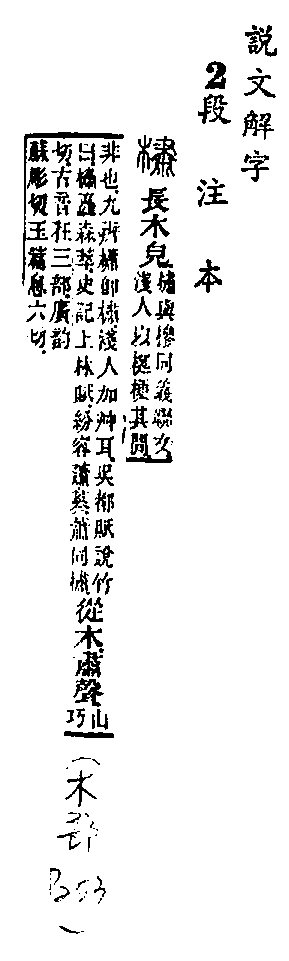 說文解字
2段注本
橚 長木皃 橚與槮同義聯文
淺人以梃梗其閒
非也九辨櫹卽橚淺人加艸耳吳都賦說竹
曰橚矗森萃史記上林賦紛容蕭蔘蕭同橚 從木肅聲 山巧
切古音在三部廣韵
蘇彫切玉篇息六切
(木部
B53
)